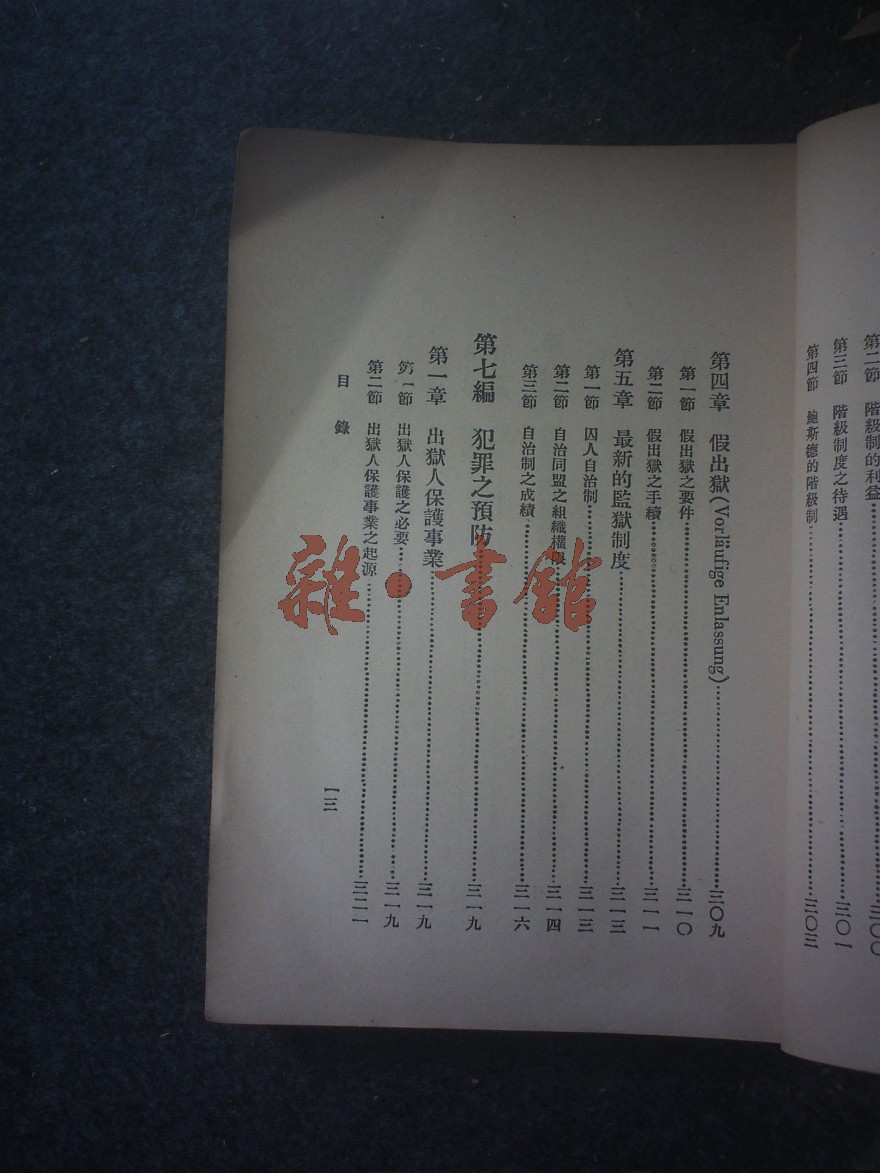 第二節 階級制的利益……三〇〇
第三節 階級制度之待遇……三〇一
第四節 鮑斯德的階級制……三〇三
第四章 假出獄(Vorläufige Enlassung)……三〇九
第一節 假出獄之要件……三一〇
第二節 假出獄之手續……三一一
第五章 最新的監獄制度……三一三
第一節 囚人自治制……三一三
第二節 自治同盟之組織權限……三一四
第三節 自治制之成績……三一六
第七編 犯罪之預防……三一九
第一章 出獄人保護事業……三一九
第一節 出獄人保護之必要……三一九
第二節 出獄人保護事業之起源……三二一
目錄
一三
雜·書館